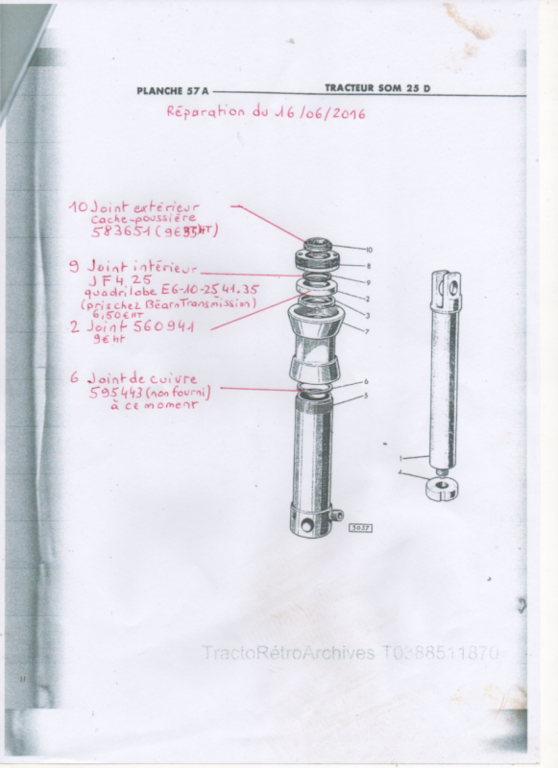 PLANCHE 57 A
TRACTEUR SOM 25 D
Réparation du 16/06/2016
10 Joint extérieur
Cache-poussière
583651 (9€ HT)
9 Joint intérieur
JF 4.25
quadrilobe E6-10-25 41.35
(pris chez Béarn Transmission)
6,50€HT
2 Joint 560941
9€ HT
6 Joint de cuivre
595443 (non fourni)
à ce moment
10
8
9
2
3
7
6
5
1
4
5937
TractoRétroArchives T0388511870